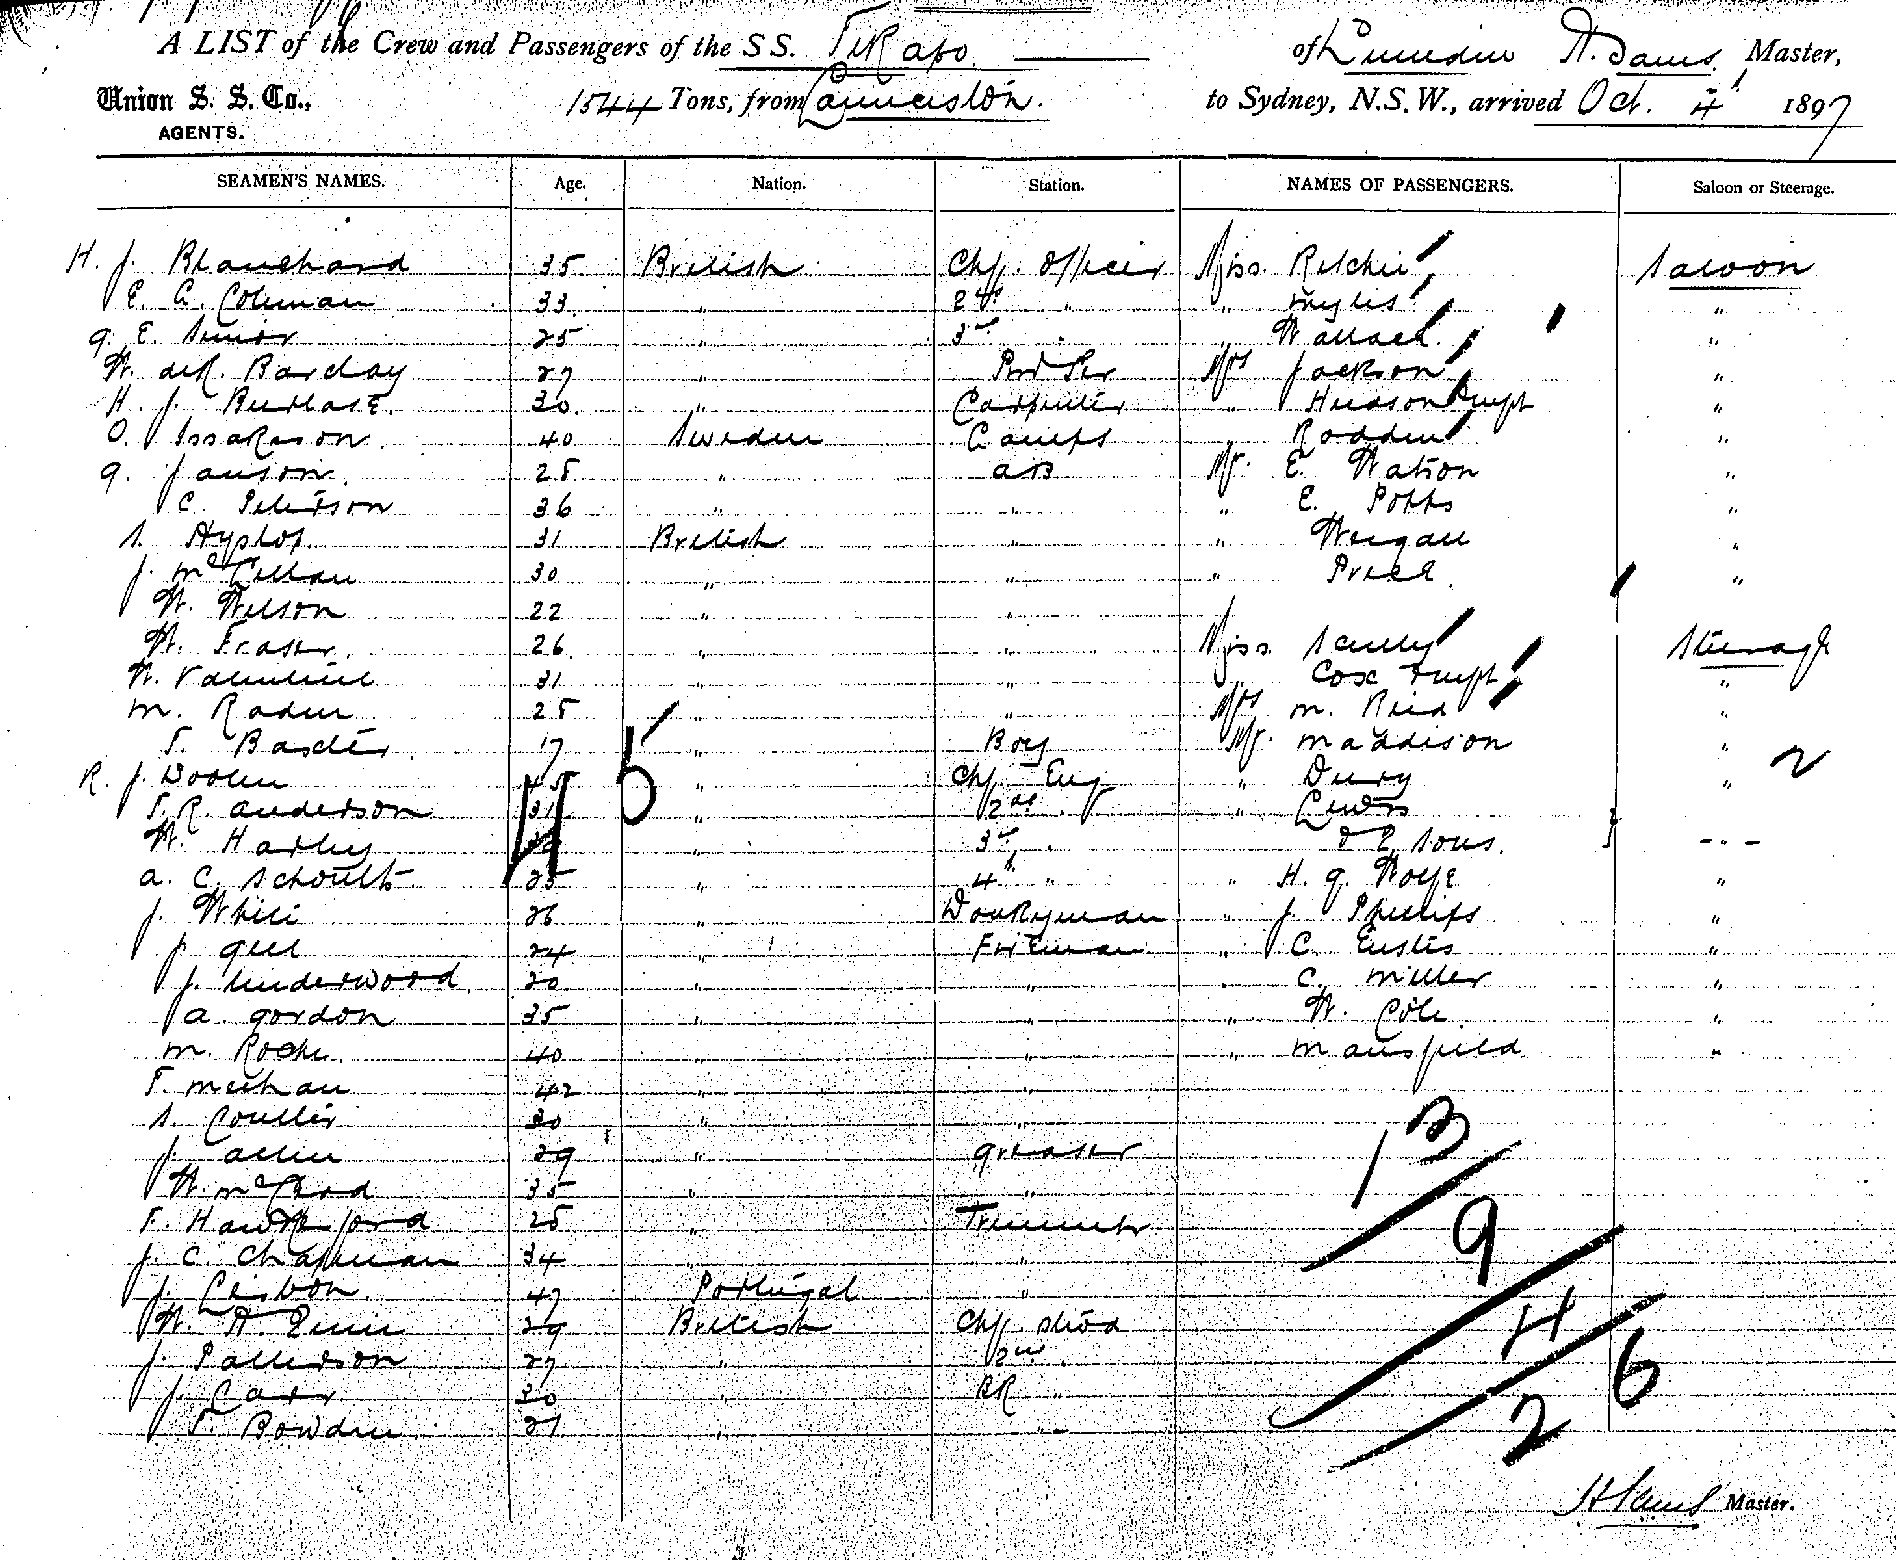 A LIST of the Crew and Passengers of the S.S. Tekapo of Dunedin H. Davis, Master,
Union S. S. Co., AGENTS. 1544 Tons, from Launceston to Sydney, N.S.W., arrived Oct. 4 1897
SEAMEN'S NAMES. Age. Nation. Station. NAMES OF PASSENGERS. Saloon or Steerage.
H. J. Blanchard 35 British Chf. Officer Miss Ritchie Saloon
E. A. Coleman 33 " 2nd " " Myles "
G. E. Senior 25 " 3rd " " Wallach "
W. deR. Barclay 27 " Mrs Jackson "
H. J. Burlase 30 " Carpenter " Hudson "
O. Issakson 40 Sweden Lamps " Rodden "
G. Janson 25 " AB Mr. E. Watson "
C. Peterson 36 " " " E. Potts "
S. Hyslop 31 British " " Weigall "
J. McLellan 30 " " " Preel "
W. Wilson 22 " "
W. Fraser 26 " " Miss Scully Steerage
W. Valentine 31 " " " Cox "
M. Roden 25 " " Mrs M. Reid "
T. Baxter 17 " Boy Mr. Maddison "
R. J. Doolen 45 " Chf. Eng " Drury " 2
T. R. Anderson 31 " 2nd " " Lewis
W. Harley " 3rd " & 2 sons - " -
A. C. Schoults 25 " 4th " " H. G. Wolfe "
J. White 26 " Donkeyman " J. Phillips "
J. Gell 24 " Fireman " C. Eustis "
J. Underwood 20 " " " C. Miller "
A. Gordon 35 " " " W. Cole "
M. Roche 40 " " " Mansfield "
T. Meehan 42 " "
S. Coulter 30 " "
J. Allen 29 " Greaser
W. McLeod 35 " "
T. Hawksford 25 " Trimmer
J. C. Chapman 34 " "
J. Lisbon 47 Portugal "
W. H. Quin 29 British Chf. Stwd
J. Patterson 27 " 2nd "
J. Carr 30 " RR "
T. Bowden 21 " "
45
13
9
4
26
H Davis Master.